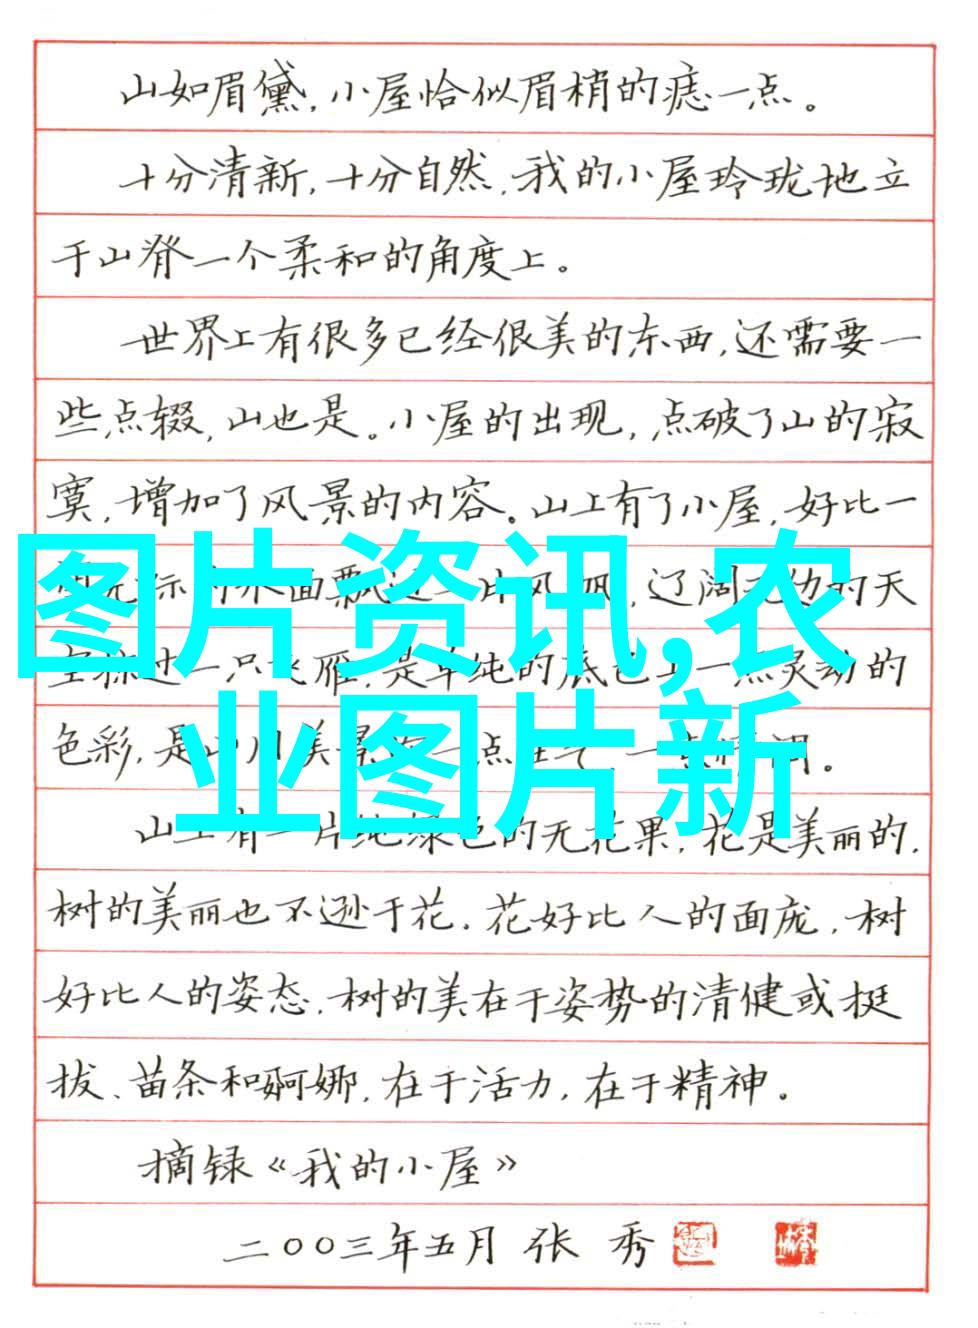 山如眉黛,小屋恰似眉梢的痣一点。
十分清新,十分自然,我的小屋玲珑地立
于山脊一个柔和的角度上。
世界上有很多已经很美的东西,还需要一
些点缀,山也是。小屋的出现,点破了山的寂
寞,增加了风景的内容。山上有了小屋,好比一
图片资讯,农
业图片新
飘过一片风帆,辽阔无边的天
一只飞雁,是单纯的底色上一点灵动的
色彩,是山川美景
山上有一片纯绿色的无花果,花是美丽的,
树的美丽也不逊于花。花好比人的面庞,树
好比人的姿态。树的美在于姿势的清健或挺
拔、苗条和婀娜,在于活力,在于精神。
摘録《我的小屋》
二〇〇三年五月 张 秀